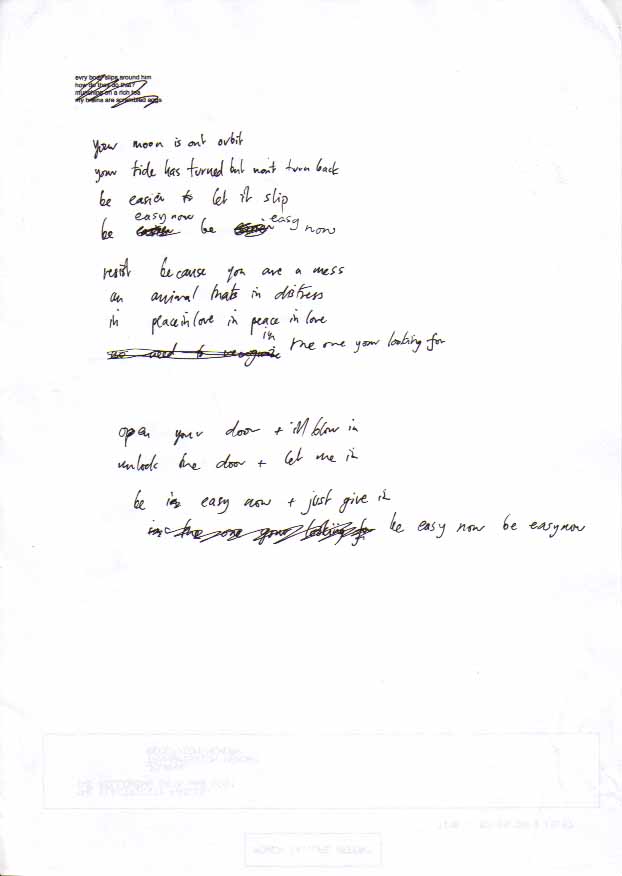 evry body slips around him
how do they do that?
munching on a rich tea
my brains are scrambled eggs
your moon is out orbit
your tide has turned but won't turn back
be easier to let it slip
easy now easy
be be now
resist because you are a mess
an animal thats in distress
in place in love in peace in love
in
no need to recognise the one your looking for
open your door + i'll blow in
unlock the door + let me in
be in easy now + just give in
the one your looking for be easy now be easy now